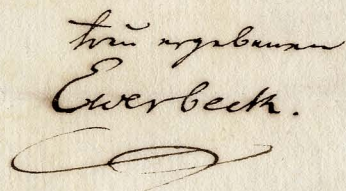 treu ergebenen
Ewerbeck.